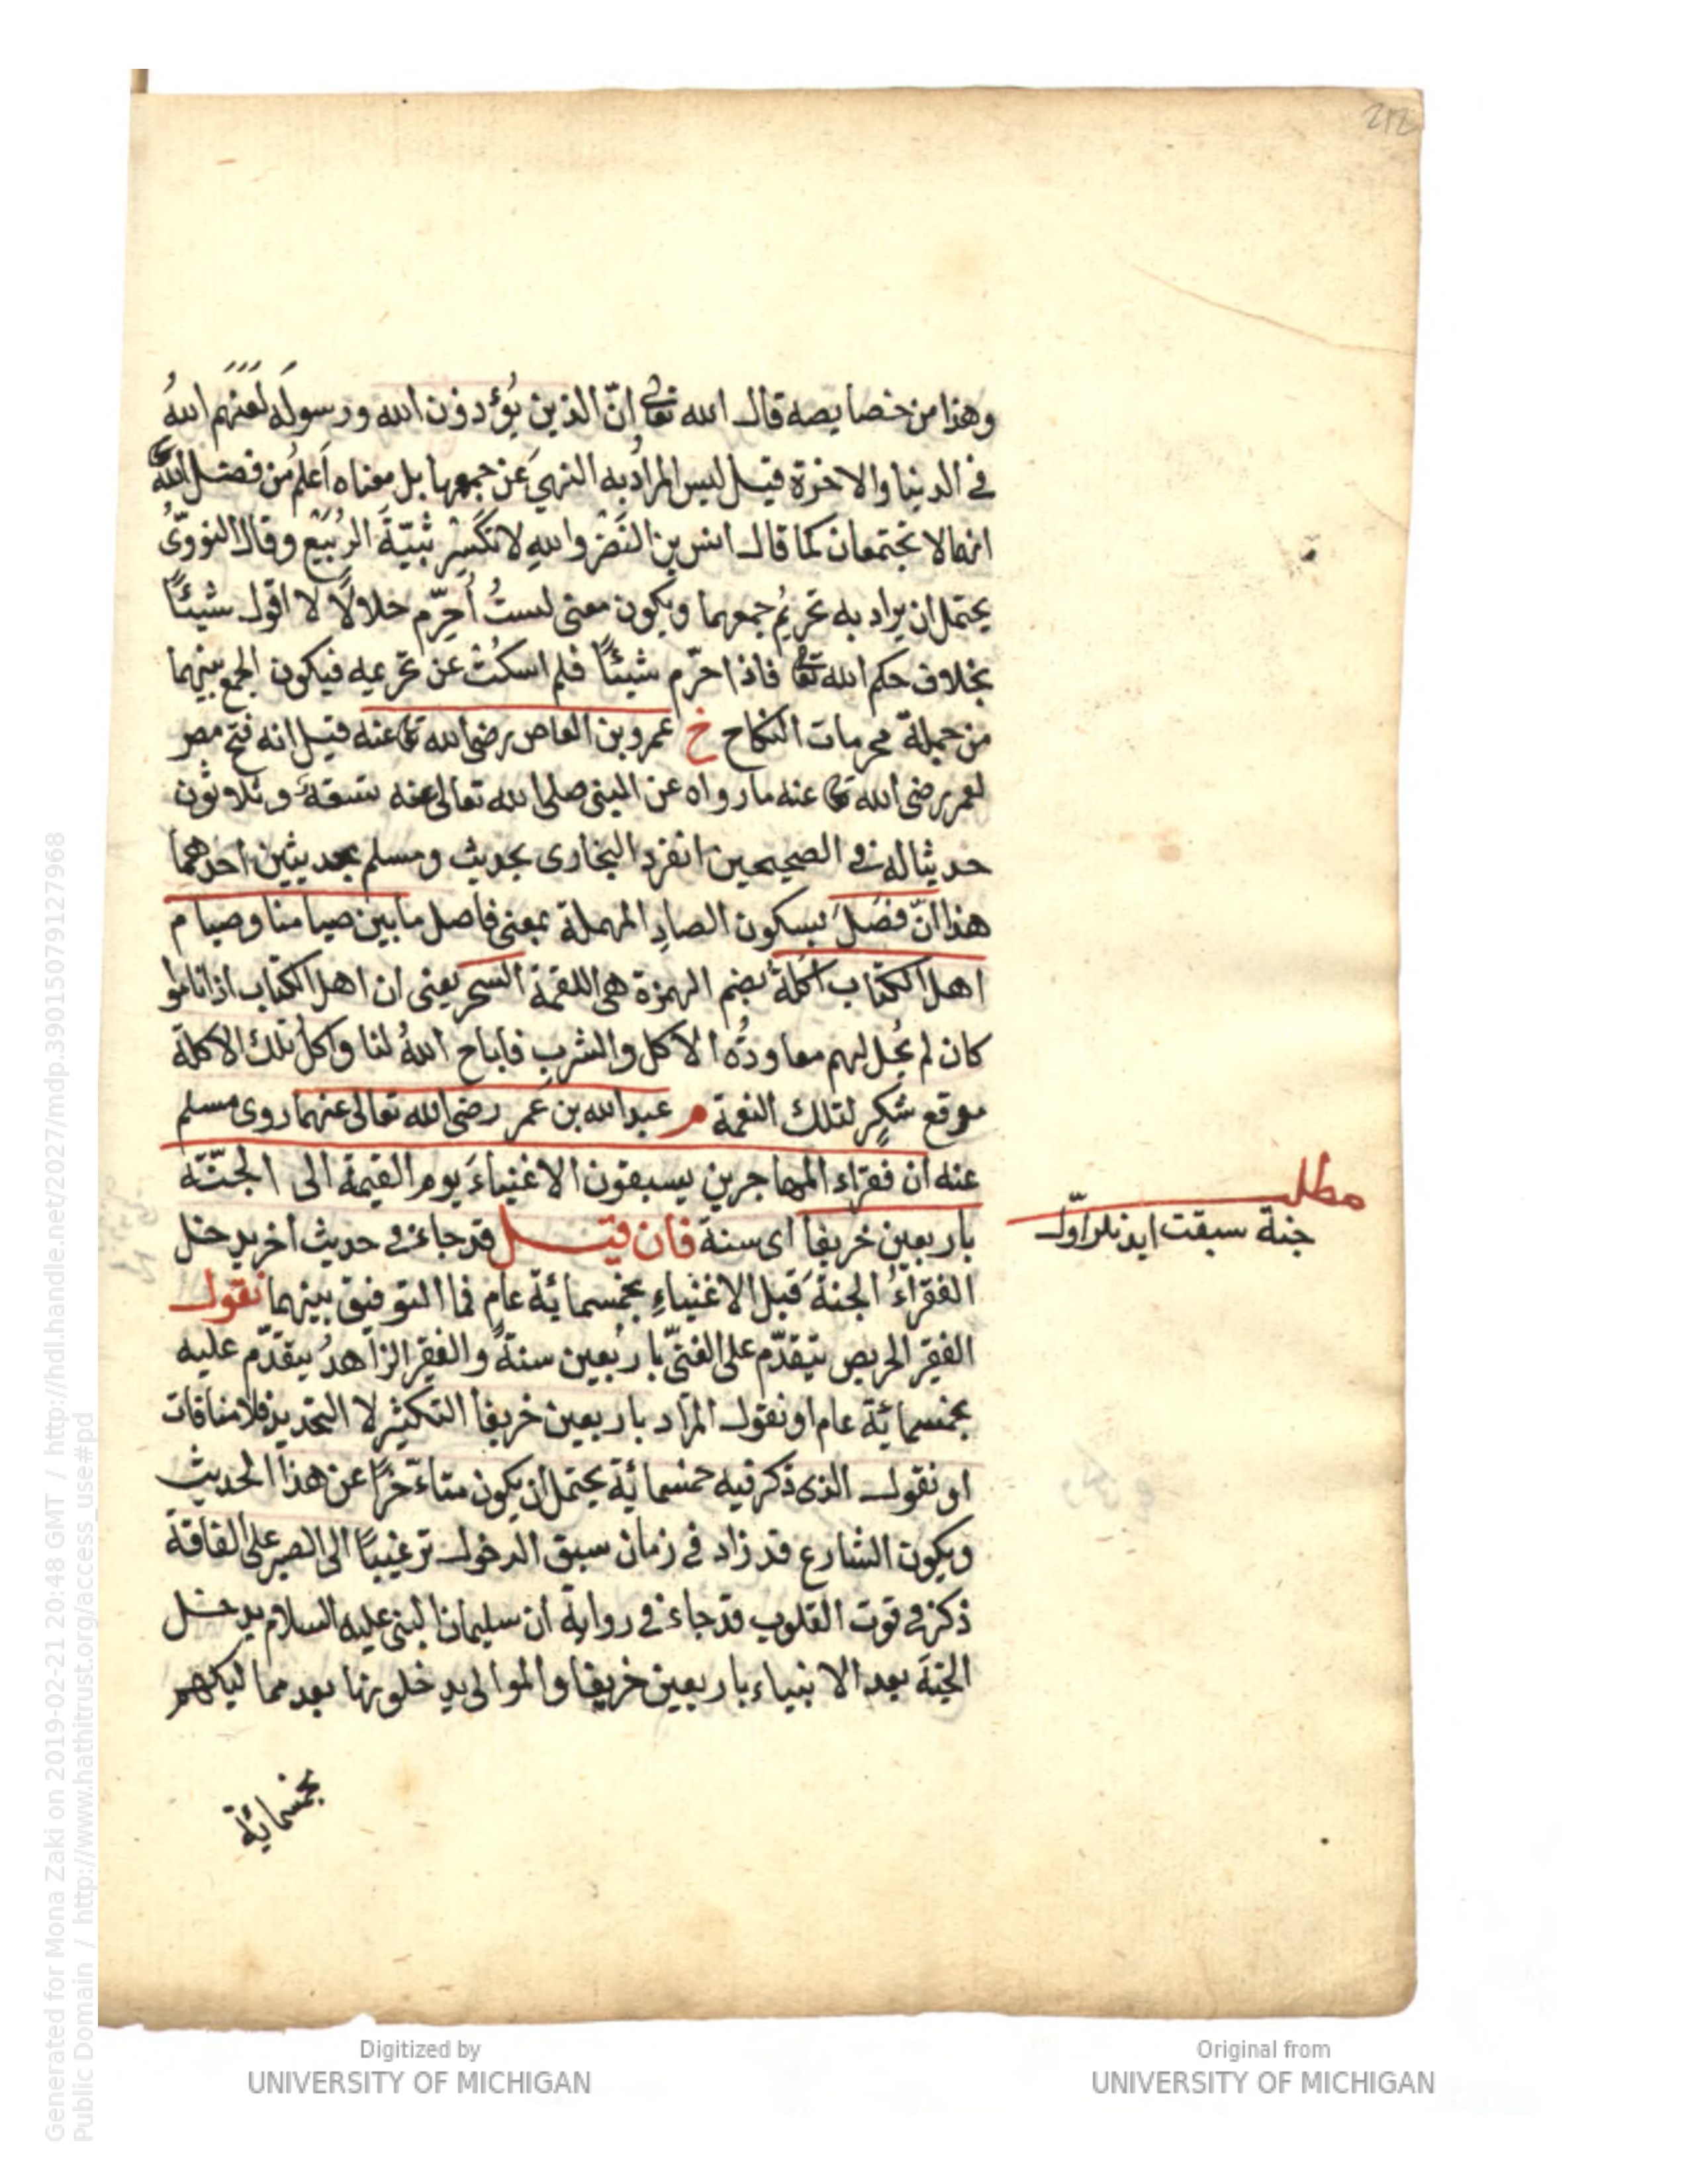 212
وهذا من خصايصه قال الله تعالى انّ الذين يُؤدون الله ورسولَه لَعَنَهَم اللهُ
في الدنيا والاخرة قيل ليس المرادُ به النهيَ عن جمعها بل معناه أعلمُ من فضل الله
انهما لا تجتمعان كما قال انس بن النَضْر والله لا تكسِر ثنيّةَ الرُبَيّع وقال النوويُّ
يحتمل ان يراد به تحريمُ جمعهما ويكون معنى لستُ أُحرّم حلالًا لا اقول شيئًا
بخلاف حكم الله تعالى فاذا حرّم شيئًا فلم اسكُتْ عن تحريمه فيكون الجمع بينهما
من جملة محرمات النكاح خ عمرو بن العاص رضى الله تعالى عنه قيل انه فتح مصر
لعمر رضى الله تعالى عنه ما رواه عن النبى صلى الله تعالى عنه تسعةَ وثلاثون
حديثا له في الصحيحين انفرد البخارى بحديث ومسلم بحديثين احدهما
هذا انّ فصَلَ بسكون الصادِ المهملة بمعنى فاصل ما بين صيامنا وصيام
اهل الكتاب اكلةُ بضم الهمزة هى اللقمة السحر يعنى ان اهل الكتاب اذا ناموا
كان لم يُحل لهم معاودُة الاكل والشرب فاباح اللهُ لنا واكلُ تلك الاكلة
موقع شكرٍ لتلك النعمة م عبد الله بن عمر رضى الله تعالى عنهما روى مسلم
عنه ان فقراء المهاجرين يسبقون الاغنياءَ يوم القيمة الى الجنّة
باربعين خريفا اى سنة فان قيل قد جاء في حديث اخر يدخل
الفقراءُ الجنةَ قبل الاغنياءِ بخمسمائة عام فما التوفيق بينهما نقول
الفقير الحريص يتقدّم على الغنىّ باربعين سنةً والفقير الزاهدُ يتقدّم عليه
بخمسمائة عام او نقول المراد باربعين خريفا التكثير لا التحديد فلا منافات
او نقول الذى ذكر فيه خمسمائة يحتمل ان يكون متاءخّرًا عن هذا الحديث
ويكون الشارع قد زاد في زمان سبق الدخول ترغيبًا الى الصبر على الفاقة
ذكر في قوت القلوب قد جاء في رواية ان سليمان النبى عليه السلام يدخل
الجنةَ بعد الانبياء باربعين خريفا والموالى يدخلونها بعد مماليكهم
بخمسمائة
مطلب
جنة سبقت ايدنلر اوّل
Generated for Mona Zaki on 2019-02-21 20:48 GMT / http://hdl.handle.net/2027/mdp.39015079127968
Public Domain / http://www.hathitrust.org/access_use#pd
Digitized by
UNIVERSITY OF MICHIGAN
Original from
UNIVERSITY OF MICHIGAN